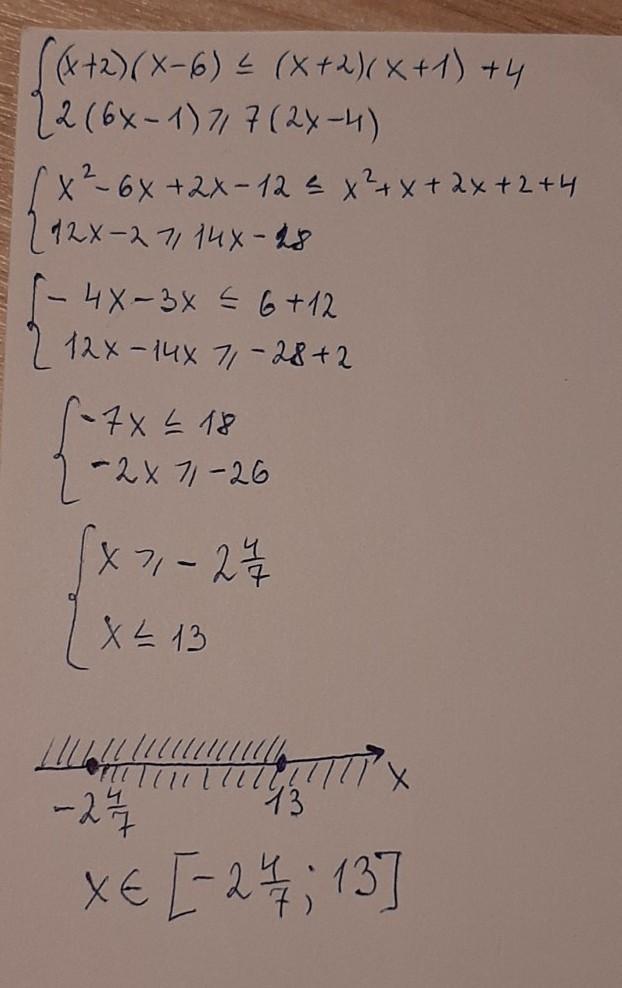 (x+2)(x-6) ≤ (x+2)(x+1) +4
2(6x-1) ⩾ 7(2x-4)
x²-6x+2x-12 ≤ x²+x+2x+2+4
12x-2 ⩾ 14x-28
-4x-3x ≤ 6+12
12x-14x ⩾ -28+2
-7x ≤ 18
-2x ⩾ -26
x ⩾ -2 4/7
x ≤ 13
x
-2 4/7 13
x∈[-2 4/7; 13]